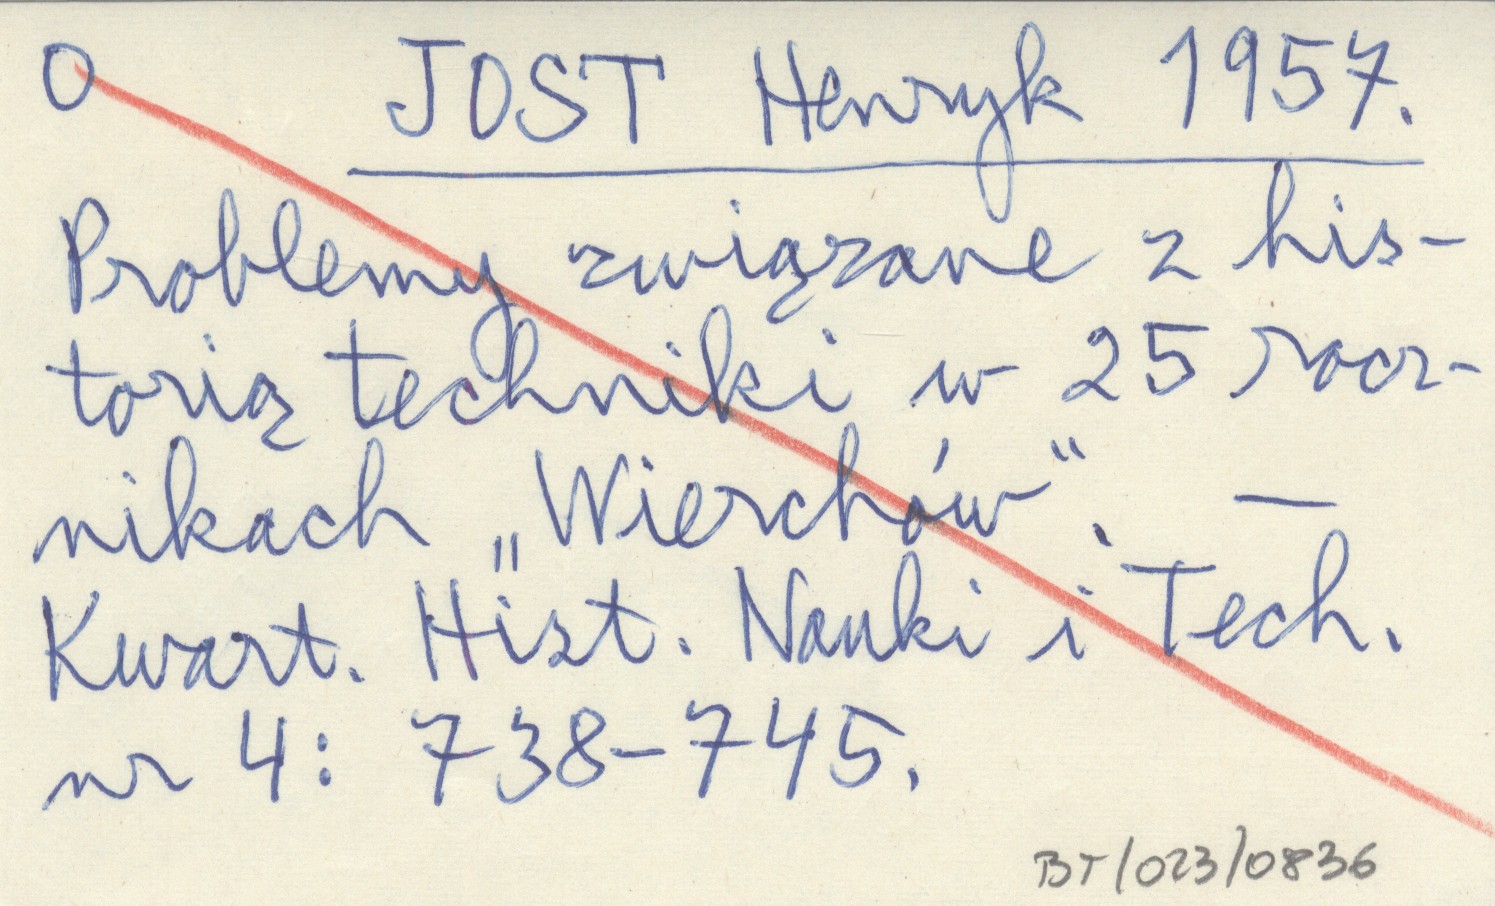 O JOST Henryk 1957.
Problemy związane z his-
torią techniki w 25 rocz-
nikach „Wierchów". —
Kwart. Hist. Nauki i Tech.
nr 4: 738-745.
BT/023/0836